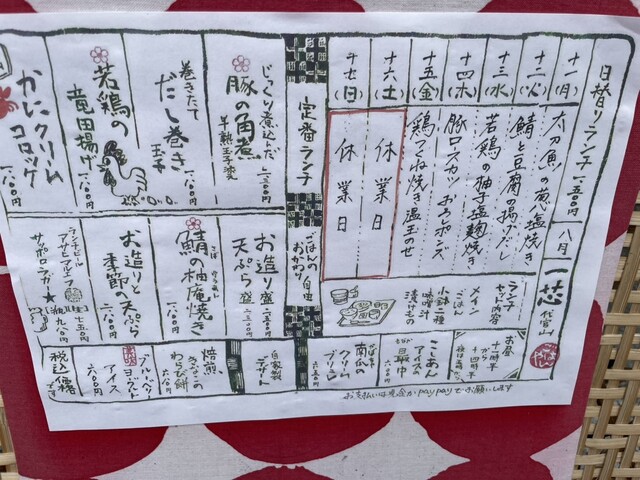 日替りランチ 一五〇〇円 八月
一芯
代官山
十一(月) 太刀魚の葱塩焼き
十二(火) 鯖と豆腐の揚げだし
十三(水) 若鶏の柚子塩麹焼き
十四(木) 豚ロスカツ おろしポンズ
十五(金) 鶏つくね焼き温玉のせ
十六(土) 休業日
十七(日) 休業日
ランチセット内容
メイン
ごはん
小鉢二種
味噌汁
漬けもの
お昼
十一時半
から
十四時半
定番ランチ
ごはんの
おかわり自由
じっくり煮込んだ
豚の角煮
半熟玉子
巻きたて
だし巻き
玉子
若鶏の
竜田揚げ
一八〇〇
かにクリーム
コロッケ
一八〇〇
お造り盛
天ぷら盛
二三〇〇
鯖の柚庵焼き
一八〇〇
お造りと
季節の天ぷら
ランチビール
アサヒマルエフ
サッポロラガー★
こしあん
アイスの
最中
六八〇
南瓜の
クリーム
ブリュレ
六五〇
自家製
デザート
焙煎
きなこの
わらび餅
六八〇
ブルーベリー
ヨーグルト
アイス
六〇〇
税込価格
です
お支払いは現金かpaypayでお願いします